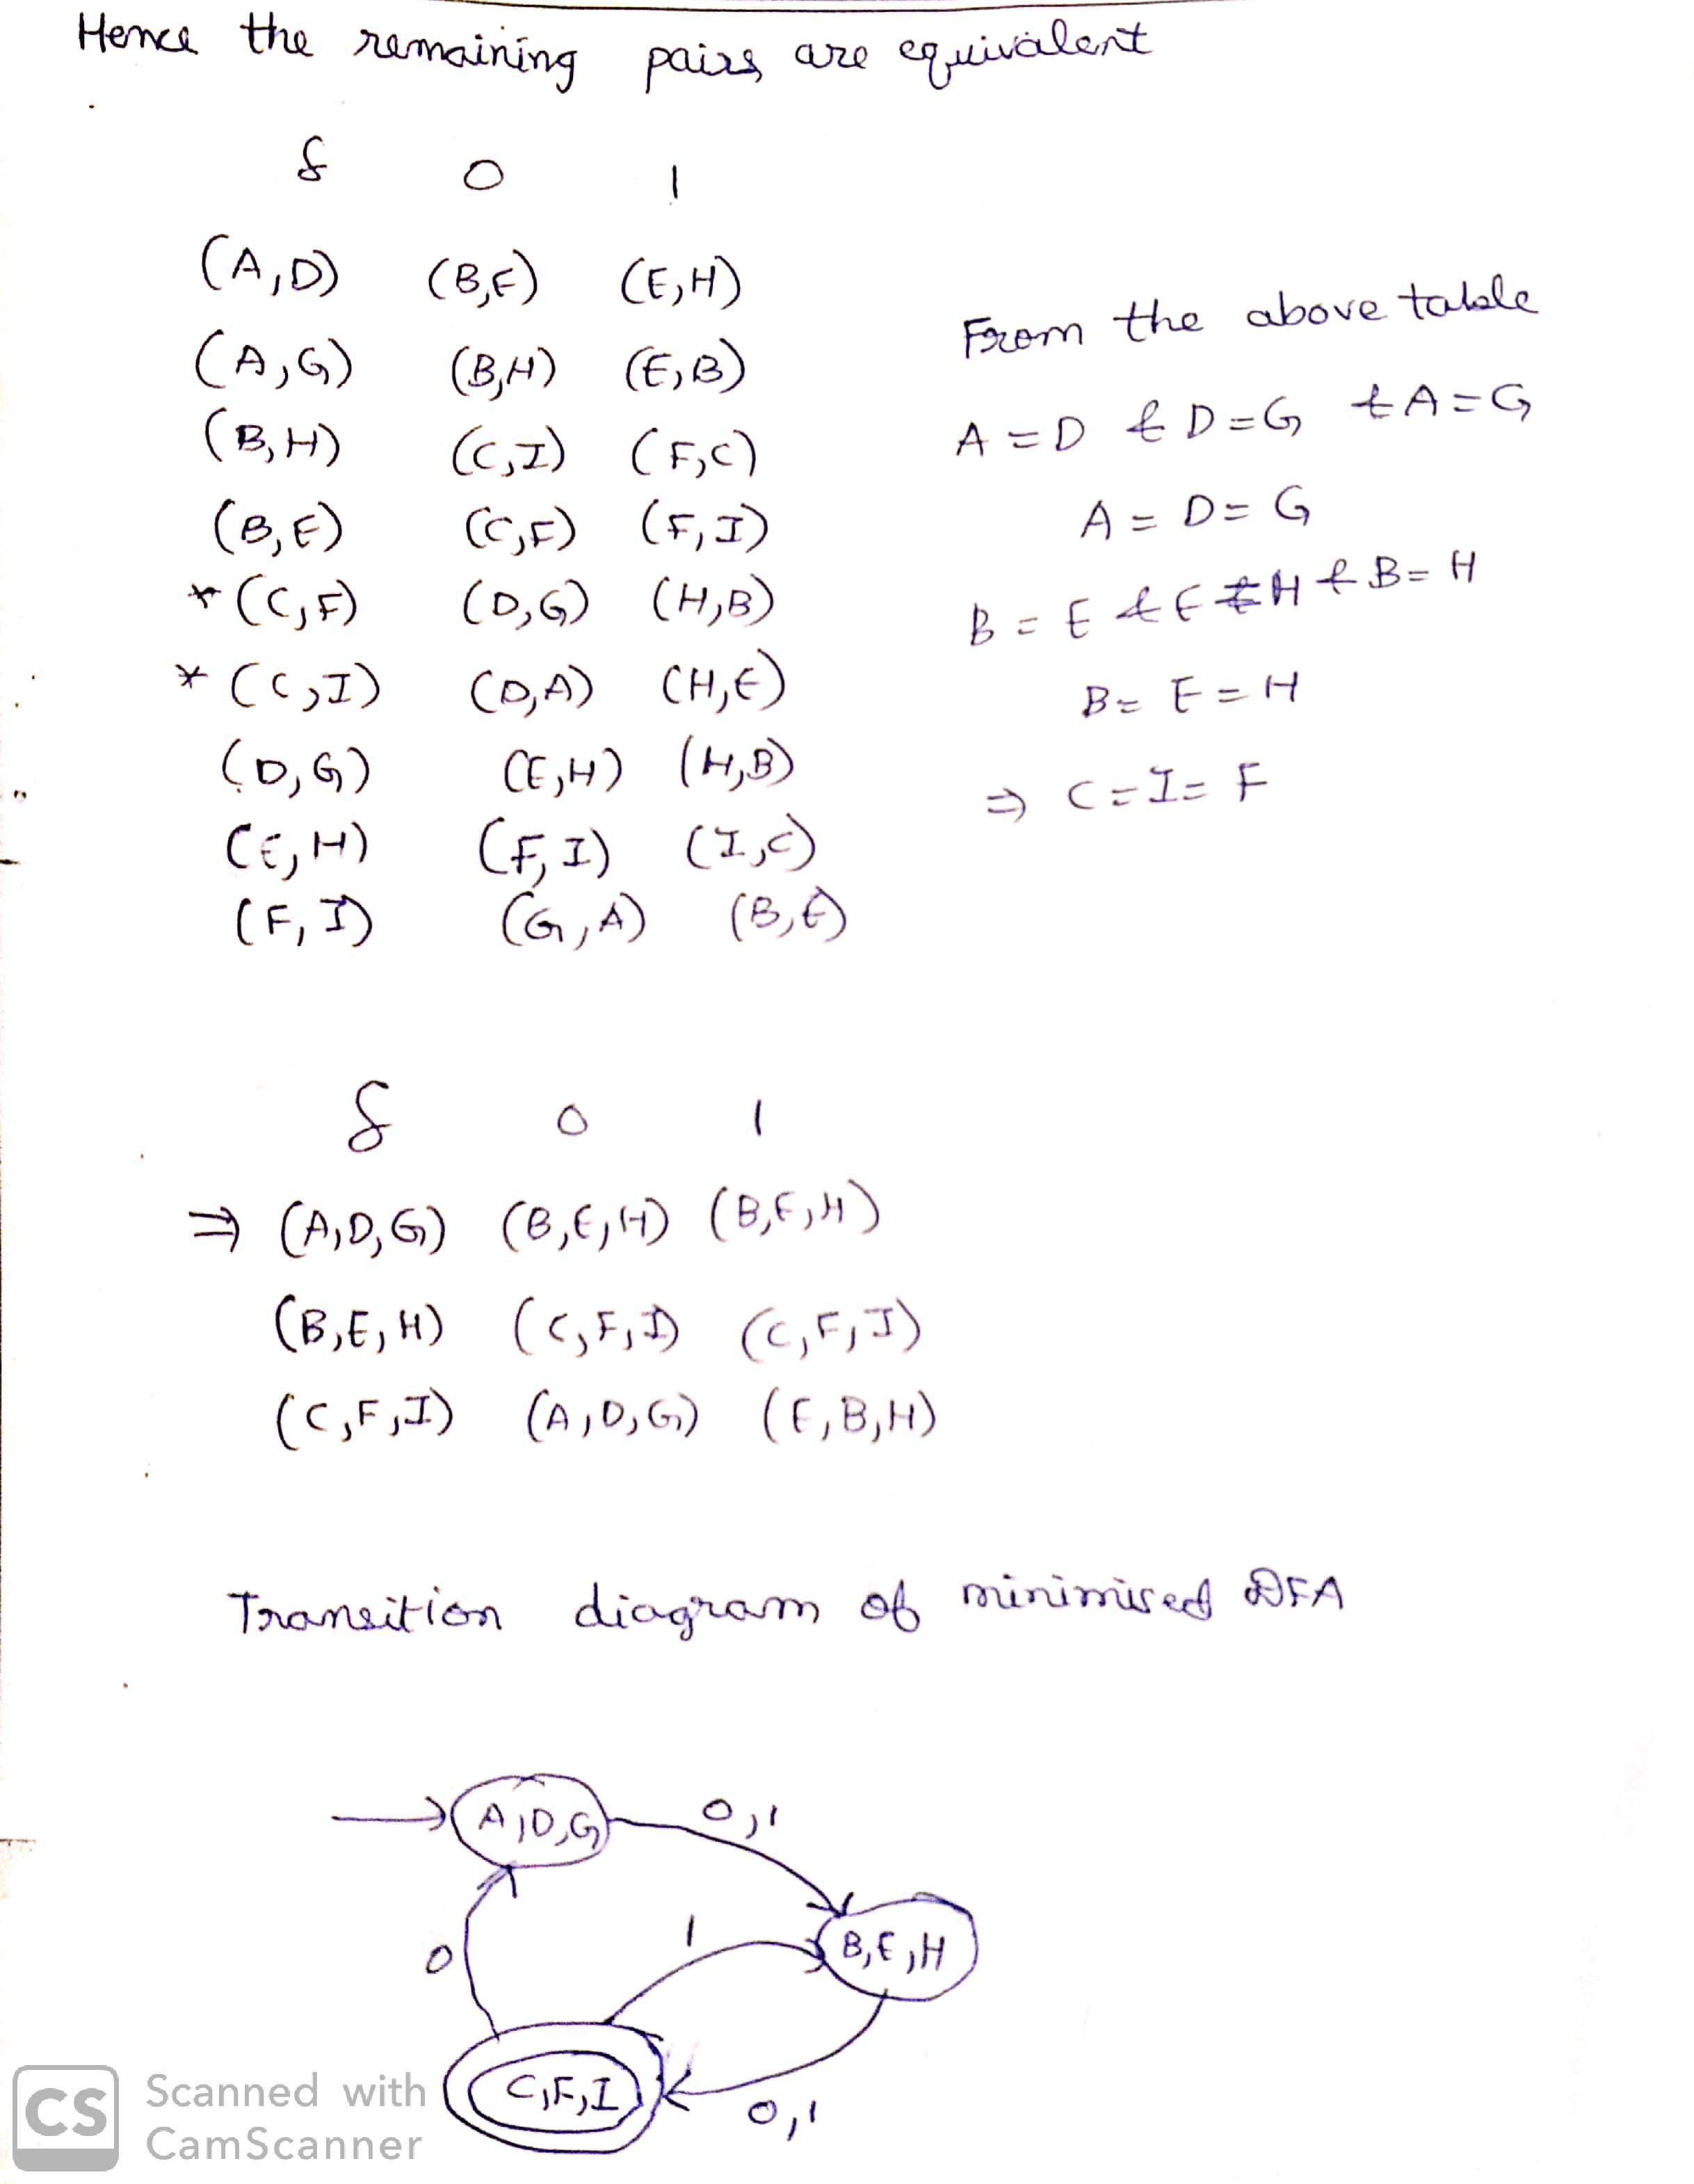 Hence the remaining pairs are equivalent
δ 0 1
(A,D) (B,E) (E,H)
(A,G) (B,H) (E,B)
(B,H) (C,I) (F,C)
(B,E) (C,F) (F,I)
* (C,F) (D,G) (H,B)
* (C,I) (D,A) (H,E)
(D,G) (E,H) (H,B)
(E,H) (F,I) (I,C)
(F,I) (G,A) (B,E)
From the above table
A = D & D = G & A = G
A = D = G
B = E & E = H & B = H
B = E = H
⇒ C = I = F
δ 0 1
⇒ (A,D,G) (B,E,H) (B,E,H)
(B,E,H) (C,F,I) (C,F,I)
(C,F,I) (A,D,G) (E,B,H)
Transition diagram of minimised DFA
A,D,G
0,1
B,E,H
1
0
C,F,I
0,1
CS
Scanned with
CamScanner